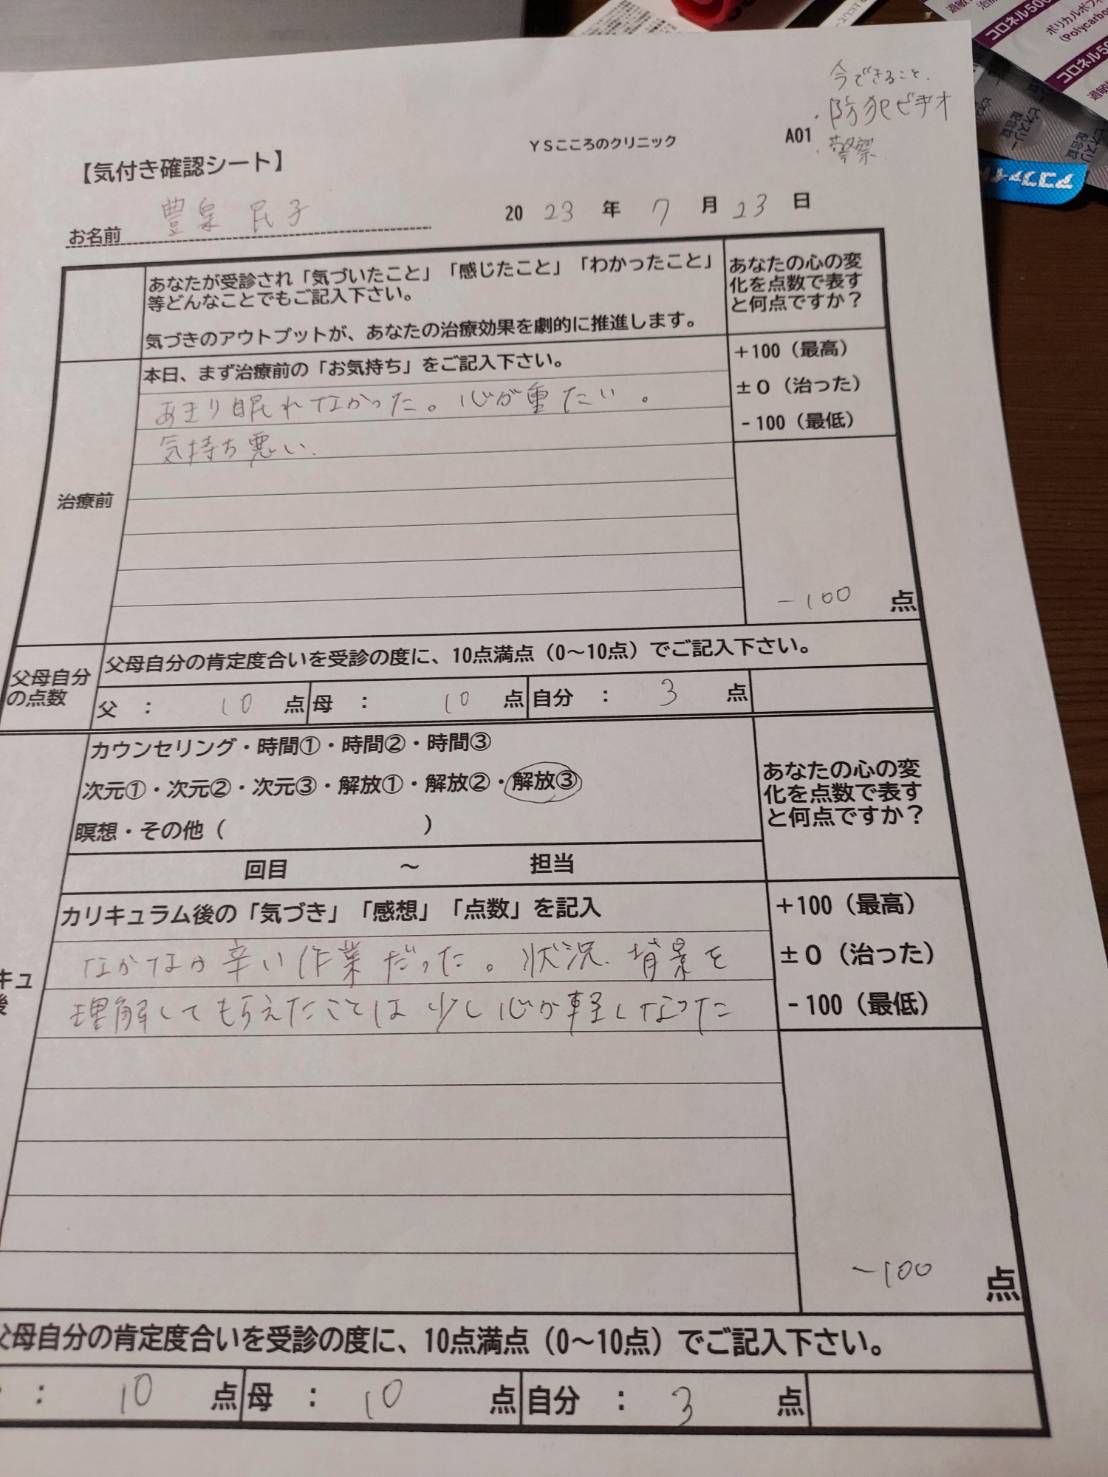 今できること.
・防犯ビデオ
・警察
YSこころのクリニック
A01
【気付き確認シート】
お名前 豊泉 民子
2023年7月23日
あなたが受診され「気づいたこと」「感じたこと」「わかったこと」
等どんなことでもご記入下さい。
気づきのアウトプットが、あなたの治療効果を劇的に推進します。
あなたの心の変
化を点数で表す
と何点ですか？
治療前
本日、まず治療前の「お気持ち」をご記入下さい。
あまり眠れなかった。心が重たい。
気持ち悪い.
+100（最高）
±0（治った）
-100（最低）
-100 点
父母自分
の点数
父母自分の肯定度合いを受診の度に、10点満点（0～10点）でご記入下さい。
父 : 10 点 母 : 10 点 自分 : 3 点
カウンセリング・時間①・時間②・時間③
次元①・次元②・次元③・解放①・解放②・解放③
瞑想・その他（ ）
回目 ～ 担当
あなたの心の変
化を点数で表す
と何点ですか？
キュ
後
カリキュラム後の「気づき」「感想」「点数」を記入
なかなか辛い作業だった。状況.背景を
理解してもらえたことは少し心が軽くなった
+100（最高）
±0（治った）
-100（最低）
-100 点
父母自分の肯定度合いを受診の度に、10点満点（0～10点）でご記入下さい。
: 10 点 母 : 10 点 自分 : 3 点
コロネル50
ポリカルボフィ
(Polycarbo
コロネル5
ビオスリー
配合錠
アコファイド